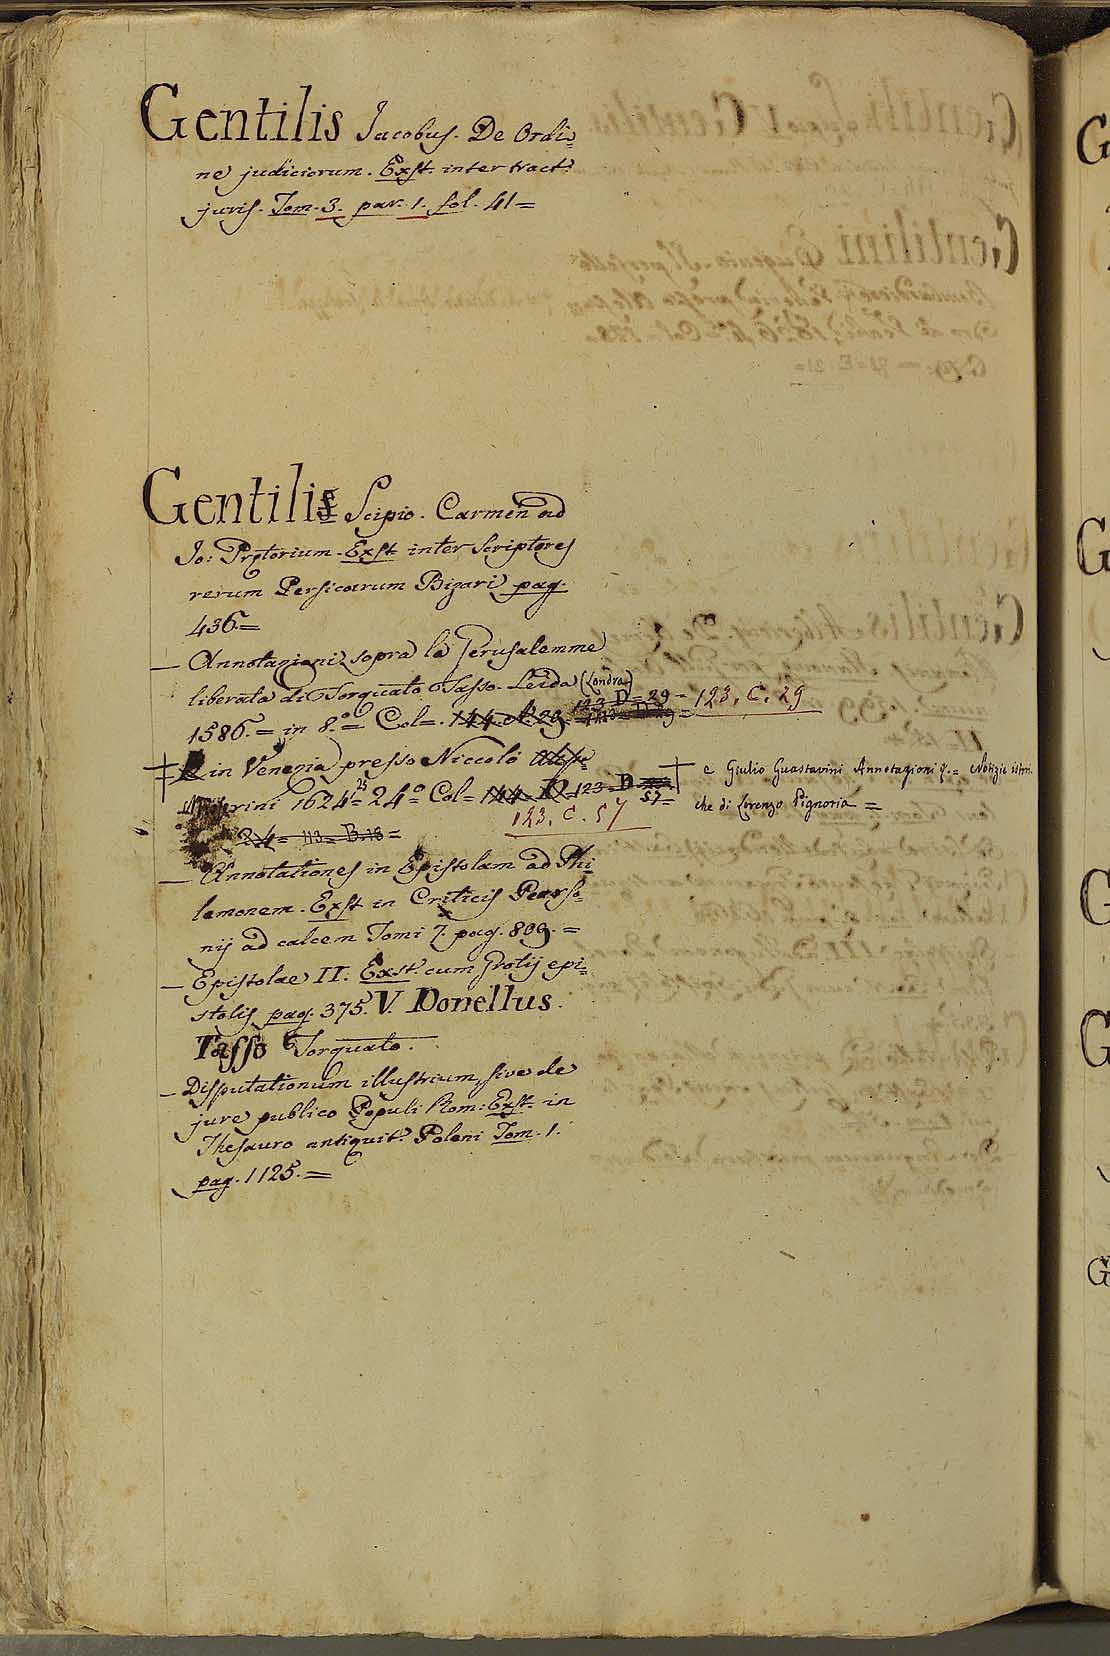 Gentilis Jacobus. De Ordi=
ne judiciorum. Exst. inter tract.s
juris. Tom. 3. par. 1. fol. 41=
Gentilis Scipio. Carmen ad
Jo: Prętorium. Exst. inter Scriptores
rerum Persicarum Bizari pag.
436.=
— Annotazioni sopra la Jerusalemme
liberata di Torquato Tasso. Leida (Londra)
1586. = in 8.o = Col=. 144. 29. 123 D = 29 = 123. C. 29
in Venezia presso Niccolò Misse=
rini 1624 25 = 24.o = Col= 144. 123 = D 57 =
† e Giulio Guastavini Annotazioni q.= Notizie istori=
che di Lorenzo Pignoria =
123. C. 57
24 = 113 = B. 18 =
— Annotationes in Epistolam ad Phi=
lemonem. Exst. in Criticis Pearso=
nij ad calcem Tomi 7. pag. 809. =
— Epistolae II. Exst. cum Grotij epi=
stolis pag. 375. V. Donellus.
Tasso Torquato.
— Disputationum illustrium, sive de
jure publico Populi Rom: Exst. in
Thesauro antiquit.s Poleni Tom. 1.
pag. 1125. =